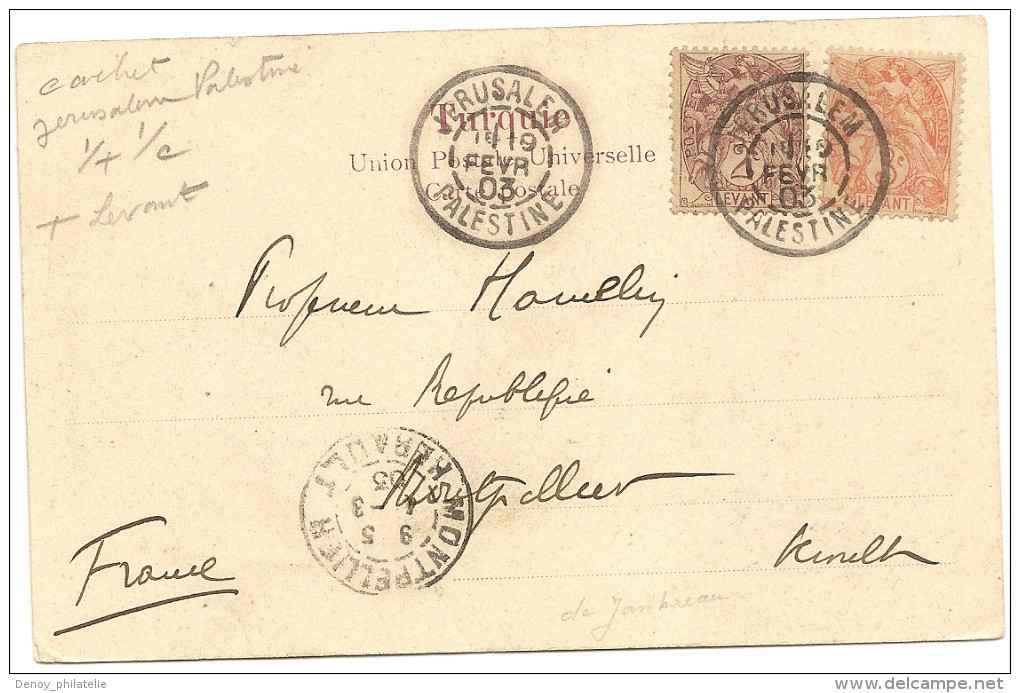 cachet
Jerusalem Palestine
1/+ 1/c
+ Levant
Turquie
Union Postale Universelle
Carte postale
JERUSALEM
19
FEVR
03
PALESTINE
POSTES
2
LEVANT
JERUSALEM
19
FEVR
03
PALESTINE
FRANÇAISE
3
LEVANT
Professeur Hamelin
rue République
Montpellier
Herault
France
MONTPELLIER
HERAULT
9
5
3
03
de
Denoy_philatelie
www.delcampe.net